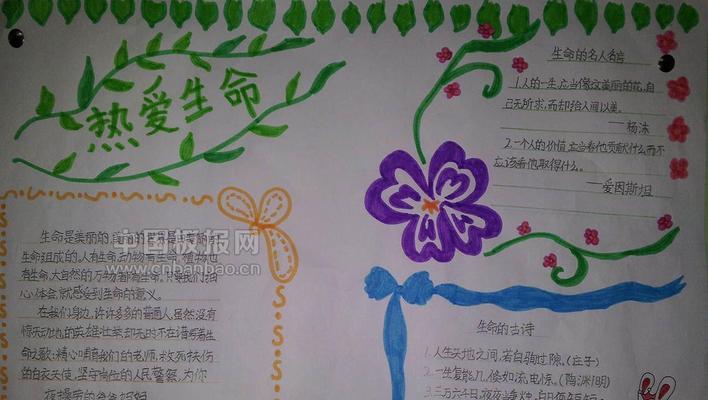 热爱生命
生命的名人名言
1.人的一生应当像这美丽的花,自
己无所求,而却给人间以美。
——杨沫
2.一个人的价值,应当看他贡献什么而不
应该看他取得什么。
——爱因斯坦
生命是美丽的,
生命组成的,人有生命,动物有生命,植物也
有生命,大自然的万物都有生命。只要我们细
心体会,就感受到生命的意义。
在我们身边,许许多多的普通人,虽然没有
惊天动地的英雄壮举,却无时不在谱写着生
命之歌:精心哺育我们的老师,救死扶伤
的白衣天使,坚守岗位的人民警察,为你
中国板报网
www.cnbanbao.cn
生命的古诗
1.人生天地之间,若白驹过隙。(庄子)
2.一生复能几,倏如流电惊。(陶渊明)
3.三万六千日,夜夜当秉烛。